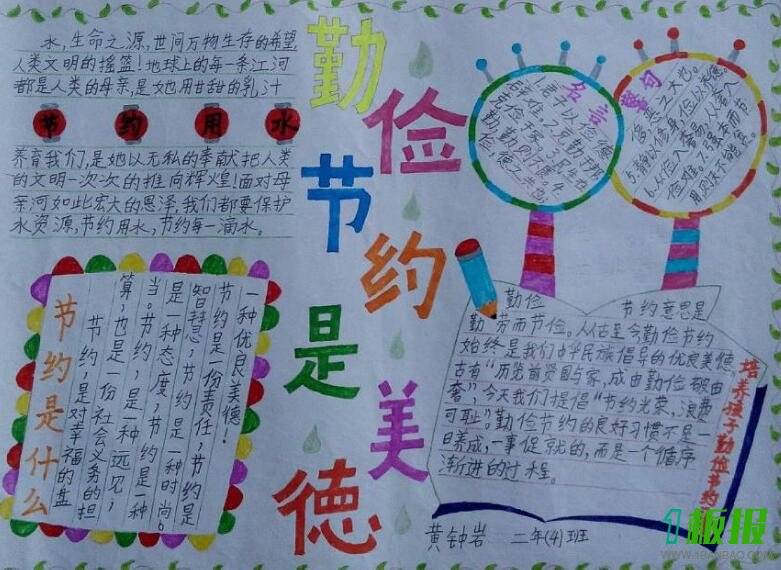 勤俭节约是美德
水,生命之源,世间万物生存的希望
人类文明的摇篮!地球上的每一条江河
都是人类的母亲,是她用甘甜的乳汁
节 约 用 水
养育我们,是她以无私的奉献把人类
的文明一次次的推向辉煌!面对母
亲河如此宏大的恩泽,我们都要保护
水资源,节约用水,节约每一滴水。
节约是什么
节约,是对幸福的盘
算,也是一份社会义务的担
当。节约,是一种远见,
是一种态度,节约是一种
智慧,节约是一种时尚。
节约是一份责任,节约是
一种优良美德!
名言
1.君子以俭德
辟难。2.克勤于邦
克俭于家。3.民生在
勤,勤则不匮。4.
俭,德之共也。
警句
5.静以修身,俭以养德。
勤俭
节约意思是
勤劳而节俭。从古至今勤俭节约
始终是我们中华民族倡导的优良美德
古有“历览前贤国与家,成由勤俭破由
奢”,今天我们提倡“节约光荣,浪费
可耻”。勤俭节约的良好习惯不是一
日养成,一事促就的,而是一个循序
渐进的过程。
培养孩子勤俭节约
黄钟岩 二年(4)班
1板报
WWW.1BANBAO.COM